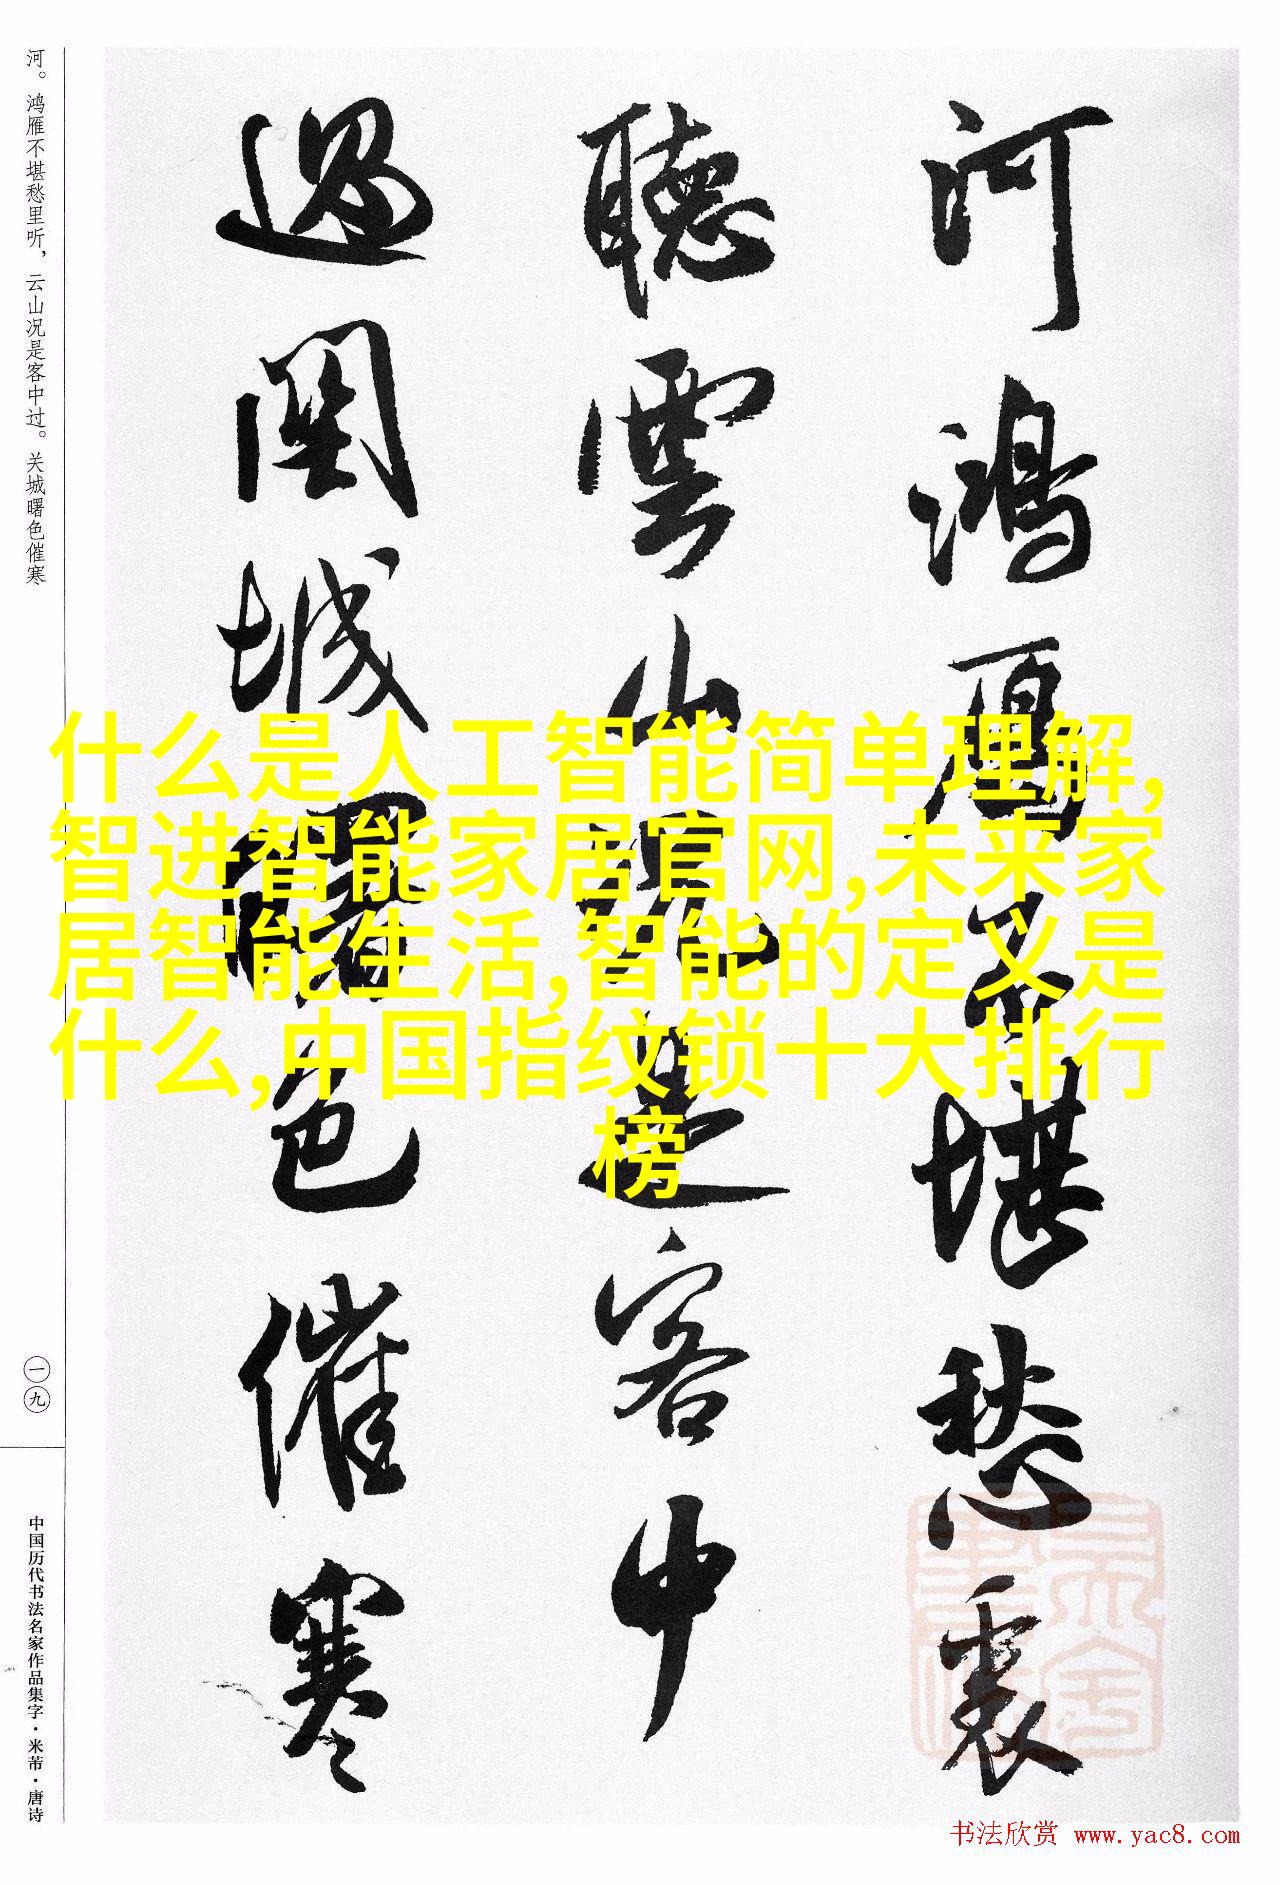 河鸿雁不堪愁裏
聽雲山況是客中
過関城曙色催寒
河。鸿雁不堪愁里听，云山况是客中过。关城曙色催寒
一九
中国历代书法名家作品集字·米芾·唐诗
什么是人工智能简单理解,
智进智能家居官网,未来家
居智能生活,智能的定义是
什么,中国指纹锁十大排行
榜
书法欣赏 www.yac8.com